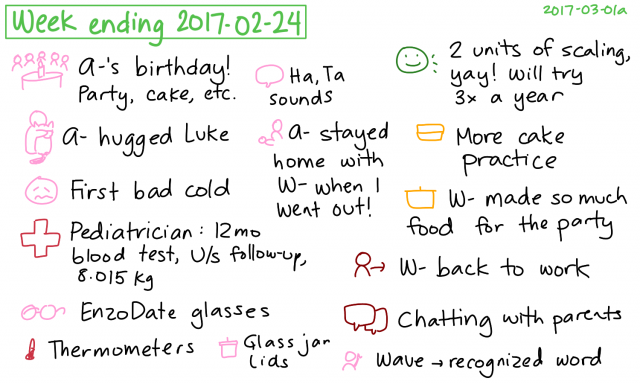 Week ending 2017-02-24
2017-03-01a
A-'s birthday!
Party, cake, etc.
A- hugged Luke
First bad cold
Pediatrician: 12mo
blood test, U/s follow-up,
8.015 kg
EnzoDate glasses
Thermometers
Glass jar
lids
Ha, Ta
sounds
A- stayed
home with
W- when I
went out!
2 units of scaling,
yay! will try
3x a year
More cake
practice
W- made so much
food for the party
W- back to work
Chatting with parents
Wave → recognized word